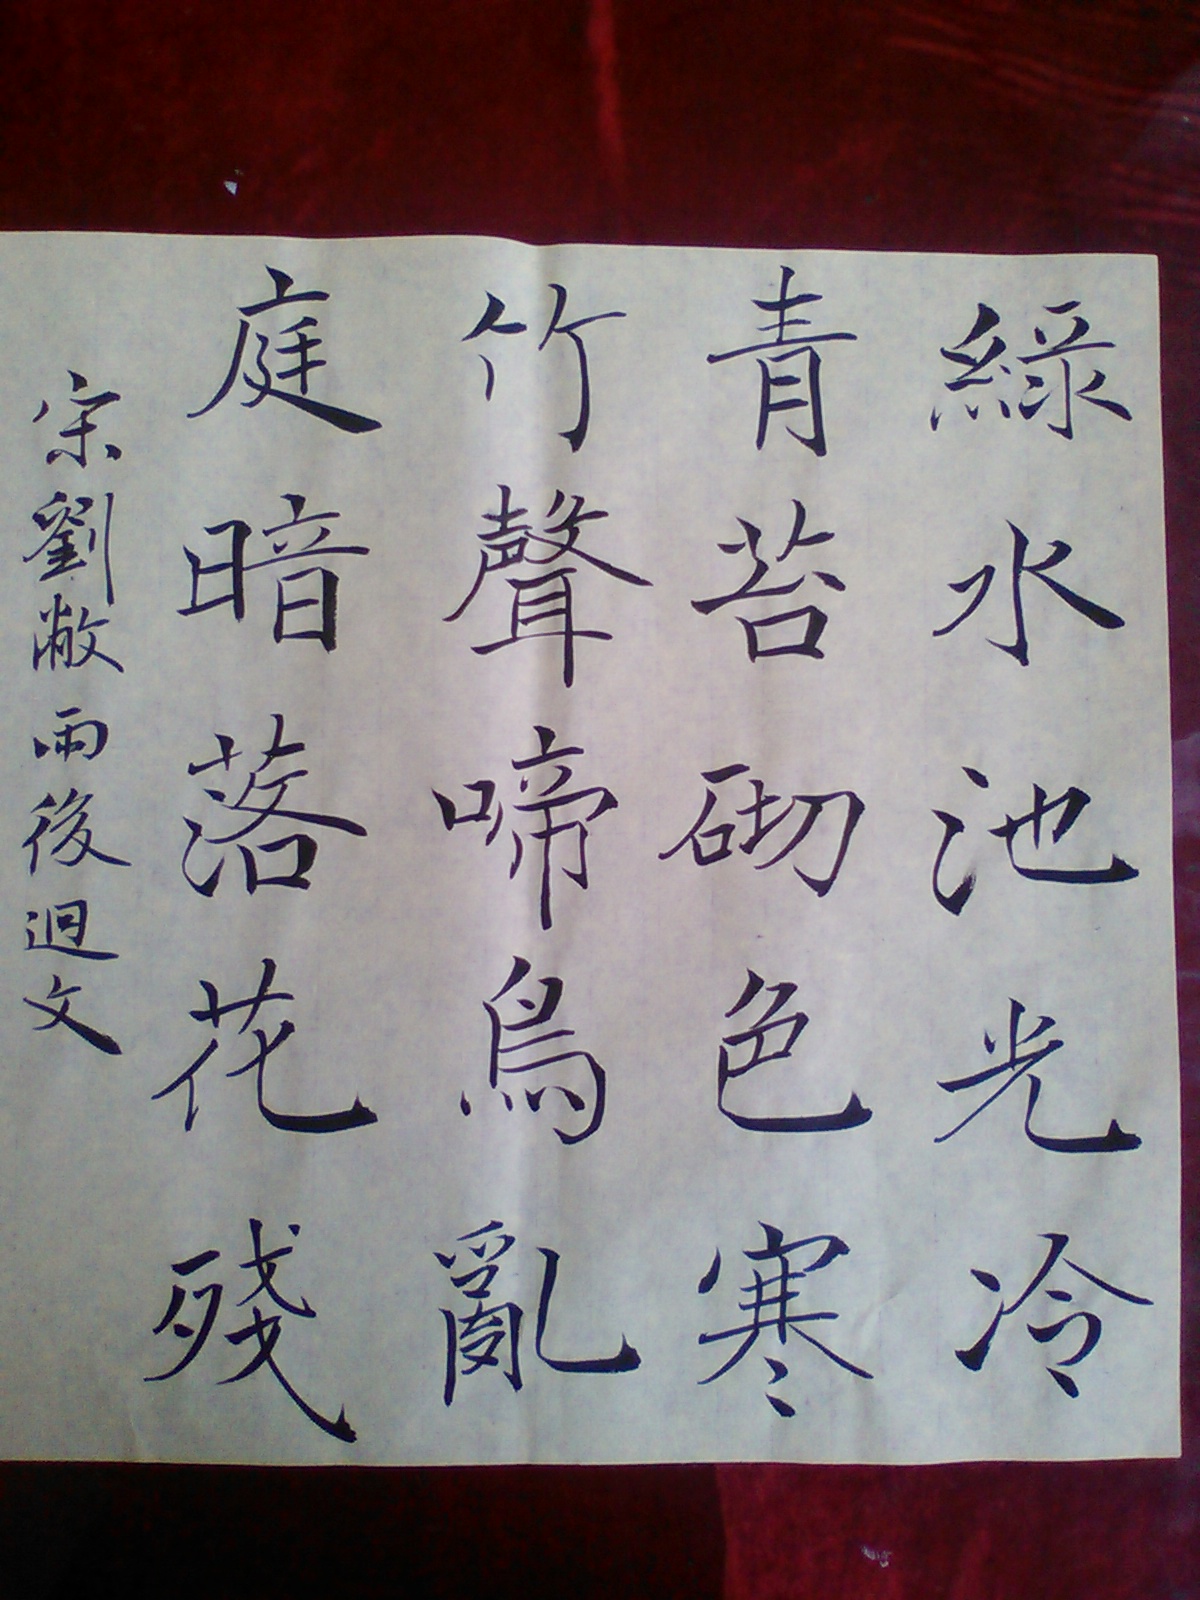 綠水池光冷
青苔砌色寒
竹聲啼鳥亂
庭暗落花殘
宋劉敞雨後迴文